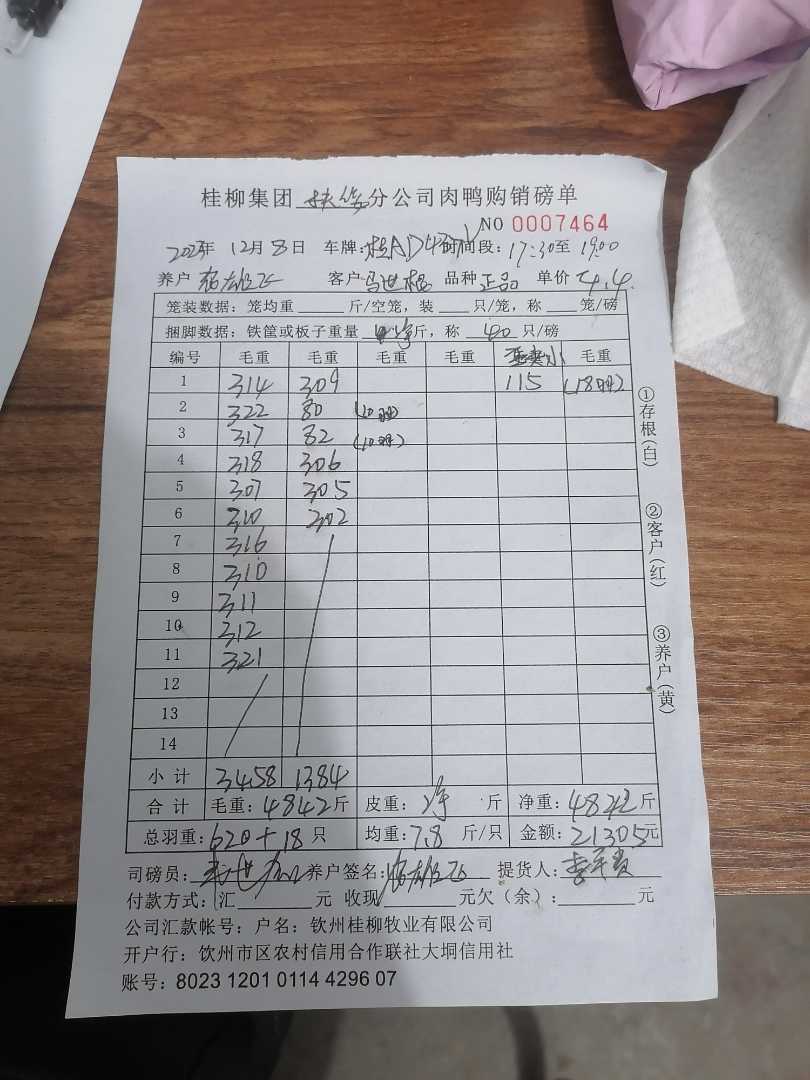 桂柳集团 扶绥 分公司肉鸭购销磅单
NO 0007464
2023年 12月 8日 车牌: 桂AD 时间段: 17:30至 19:00
养户 客户 马世 品种 正品 单价 4.4
笼装数据: 笼均重 斤/空笼, 装 只/笼, 称 笼/磅
捆脚数据: 铁筐或板子重量 净斤, 称 40 只/磅
编号 毛重 毛重 毛重 毛重 小 毛重
1 314 309 115 (18只)
2 322 80 (10只)
3 317 82 (10只)
4 318 306
5 307 305
6 310 302
7 316
8 310
9 311
10 312
11 321
12
13
14
小计 3458 1384
合计 毛重: 4842斤 皮重: 净 斤 净重: 4842斤
总羽重: 620+18 只 均重: 7.8 斤/只 金额: 21305元
司磅员: 养户签名: 提货人:
付款方式: 汇 元 收现 元欠(余): 元
公司汇款帐号: 户名: 钦州桂柳牧业有限公司
开户行: 饮州市区农村信用合作联社大垌信用社
账号: 8023 1201 0114 4296 07
①存根(白)
②客户(红)
③养户(黄)